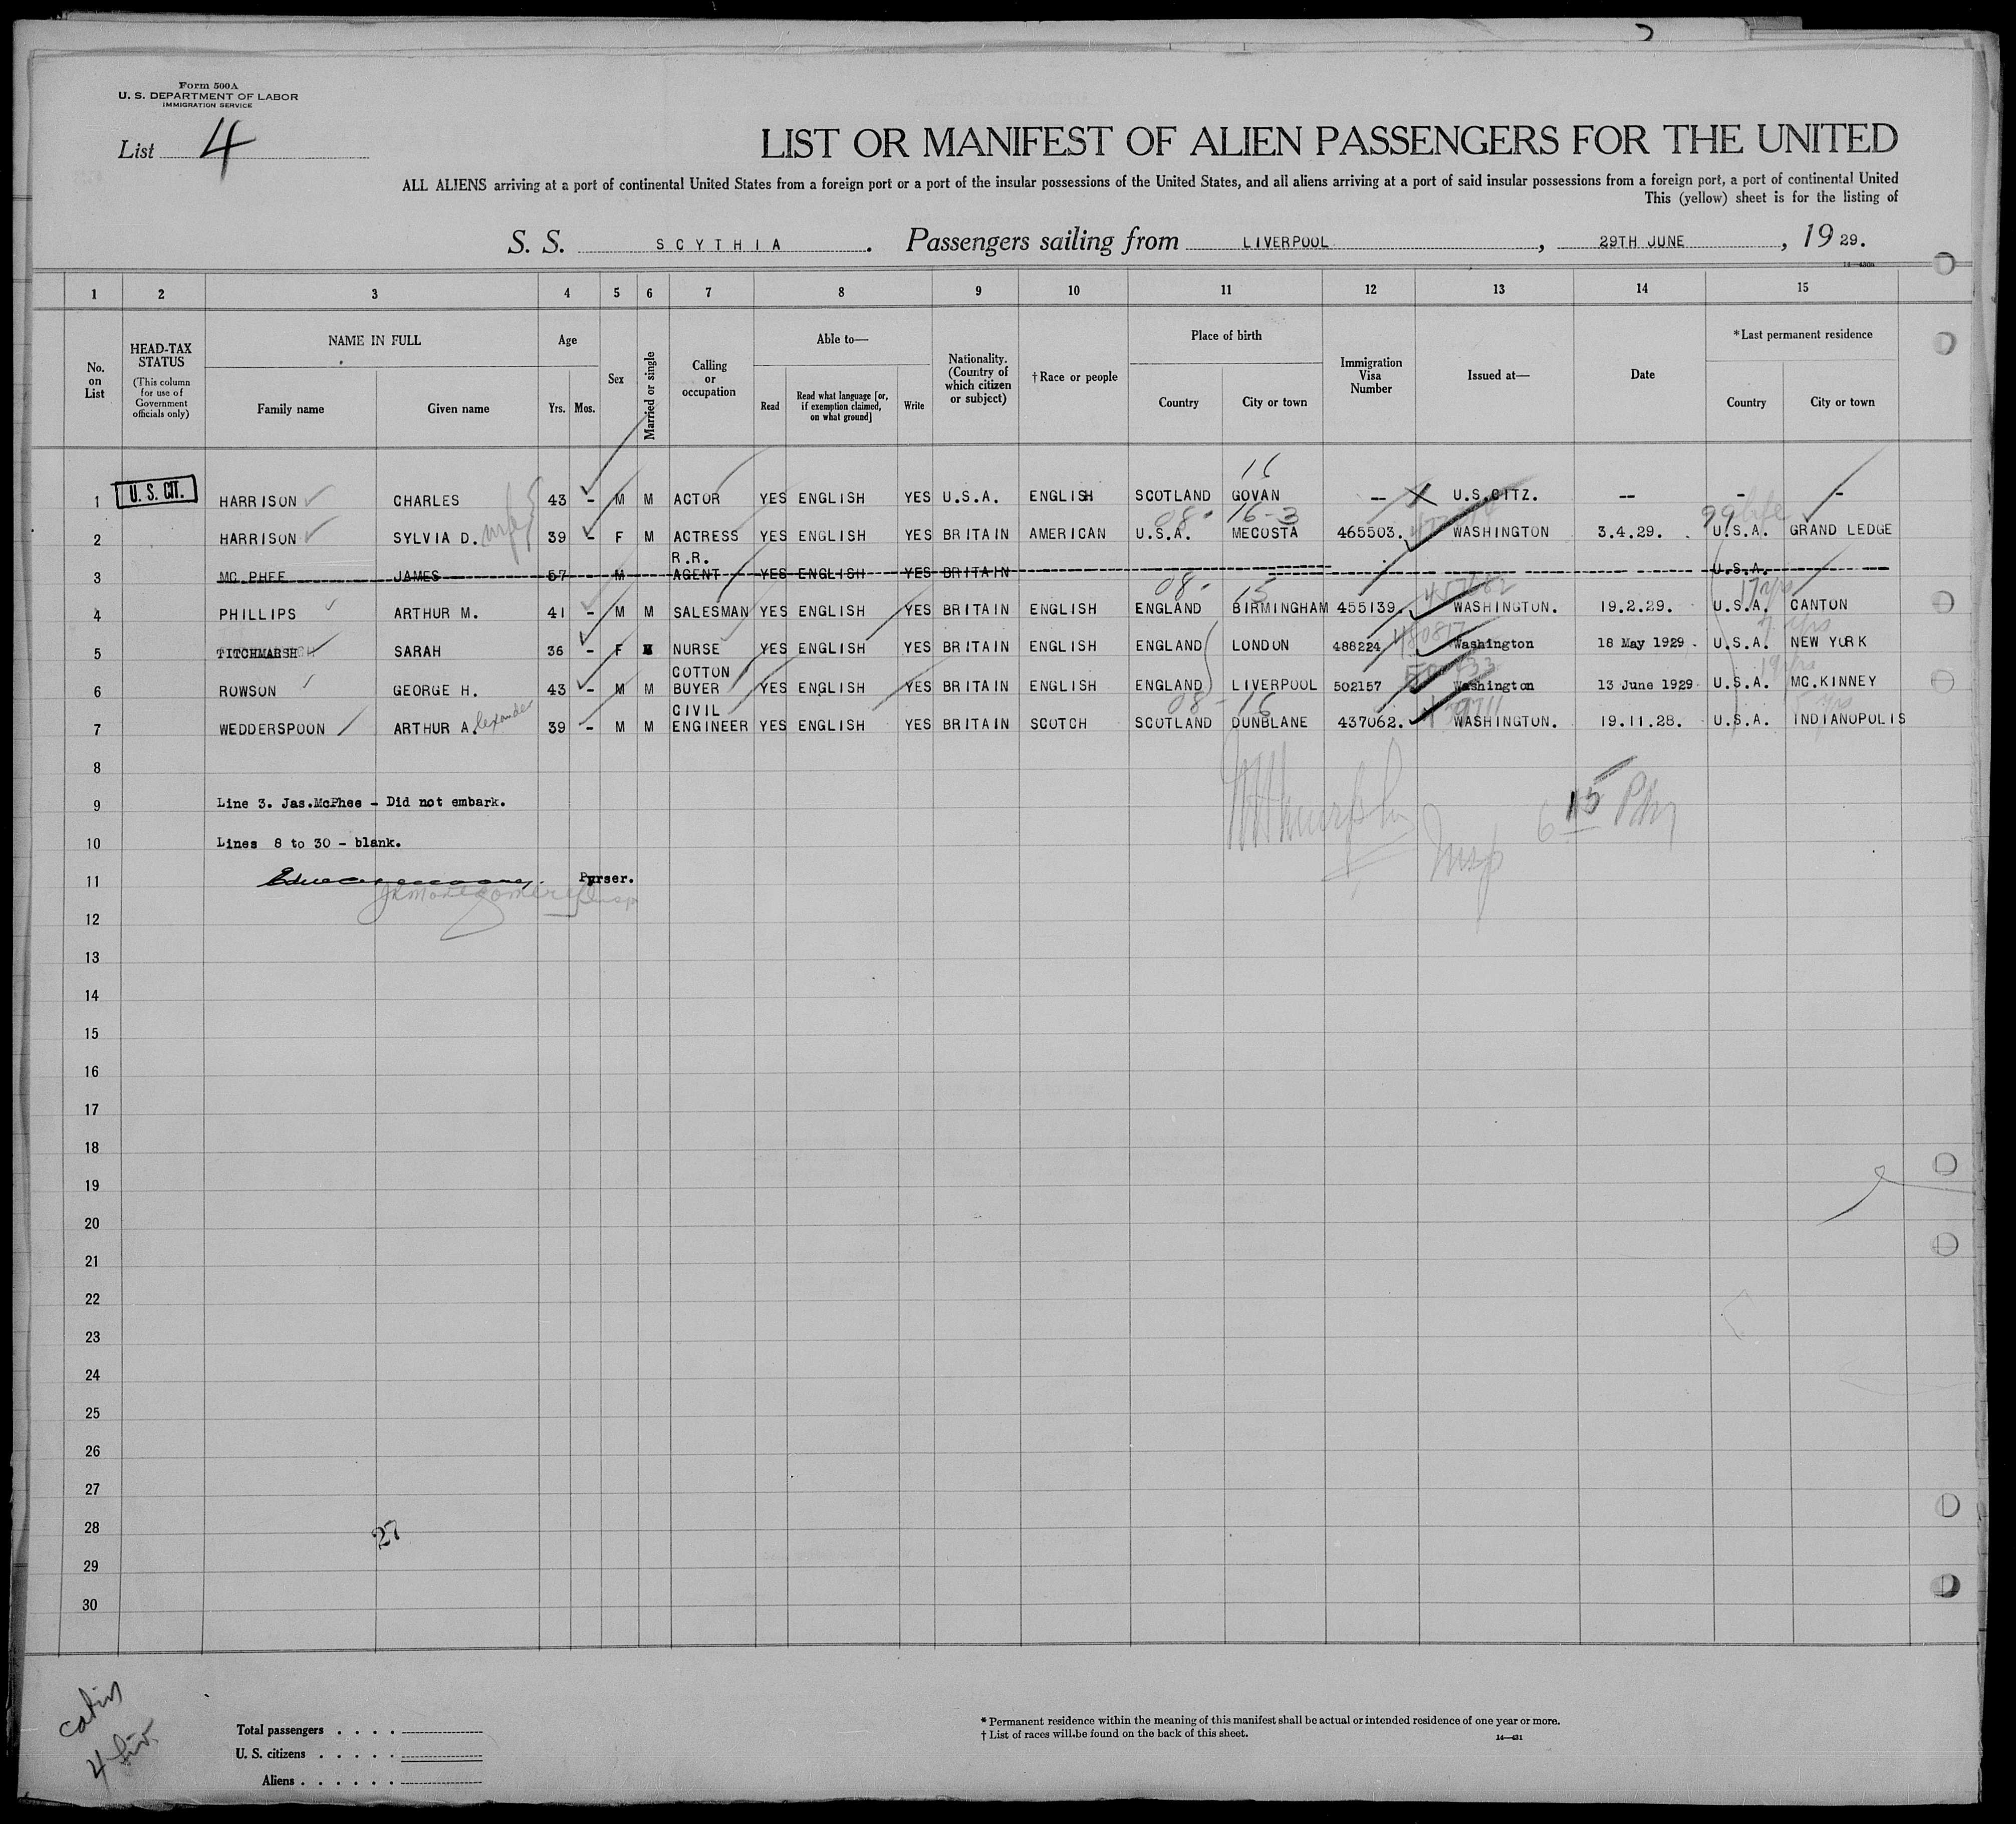 Form 500A
U. S. DEPARTMENT OF LABOR
IMMIGRATION SERVICE
List 4
LIST OR MANIFEST OF ALIEN PASSENGERS FOR THE UNITED
ALL ALIENS arriving at a port of continental United States from a foreign port or a port of the insular possessions of the United States, and all aliens arriving at a port of said insular possessions from a foreign port, a port of continental United
This (yellow) sheet is for the listing of
S. S. SCYTHIA. Passengers sailing from LIVERPOOL, 29TH JUNE, 19 29.
1 2 3 4 5 6 7 8 9 10 11 12 13 14 15
No. on List
HEAD-TAX STATUS (This column for use of Government officials only)
NAME IN FULL
Family name Given name
Age
Yrs. Mos.
Sex
Married or single
Calling or occupation
Able to—
Read Read what language [or, if exemption claimed, on what ground] Write
Nationality. (Country of which citizen or subject)
†Race or people
Place of birth
Country City or town
Immigration Visa Number
Issued at—
Date
*Last permanent residence
Country City or town
16
1 U. S. CIT. HARRISON CHARLES 43 - M M ACTOR YES ENGLISH YES U.S.A. ENGLISH SCOTLAND GOVAN -- X U.S.CITZ. -- - -
08- 16-3
2 HARRISON SYLVIA D. wife 39 - F M ACTRESS YES ENGLISH YES BRITAIN AMERICAN U.S.A. MECOSTA 465503. WASHINGTON 3.4.29. U.S.A. GRAND LEDGE
3 MC PHEE JAMES 57 - M R.R. AGENT YES ENGLISH YES BRITAIN U.S.A.
08- 15 17 yrs
4 PHILLIPS ARTHUR M. 41 - M M SALESMAN YES ENGLISH YES BRITAIN ENGLISH ENGLAND BIRMINGHAM 455139. WASHINGTON. 19.2.29. U.S.A. CANTON
5 TITCHMARSH SARAH 36 - F NURSE YES ENGLISH YES BRITAIN ENGLISH ENGLAND LONDON 488224 Washington 18 May 1929. U.S.A. NEW YORK
6 ROWSON GEORGE H. 43 - M M COTTON BUYER YES ENGLISH YES BRITAIN ENGLISH ENGLAND LIVERPOOL 502157 Washington 13 June 1929 U.S.A. MC.KINNEY
08-16
7 WEDDERSPOON ARTHUR A.lexander 39 - M M CIVIL ENGINEER YES ENGLISH YES BRITAIN SCOTCH SCOTLAND DUNBLANE 437062. WASHINGTON. 19.11.28. U.S.A. INDIANOPOLIS
8
9 Line 3. Jas.McPhee - Did not embark.
10 Lines 8 to 30 - blank.
Insp 6 15 PM
11 Purser.
12
13
14
15
16
17
18
19
20
21
22
23
24
25
26
27
28 27
29
30
cabin
4
Total passengers
U. S. citizens
Aliens
* Permanent residence within the meaning of this manifest shall be actual or intended residence of one year or more.
† List of races will be found on the back of this sheet.
14—431